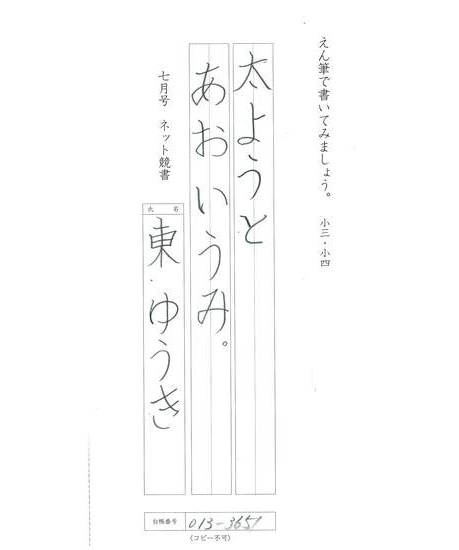 えん筆で書いてみましょう。 小三・小四
太ようと
あおいうみ。
七月号 ネット競書
氏名
東 ゆうき
台帳番号 013-3651
(コピー不可)